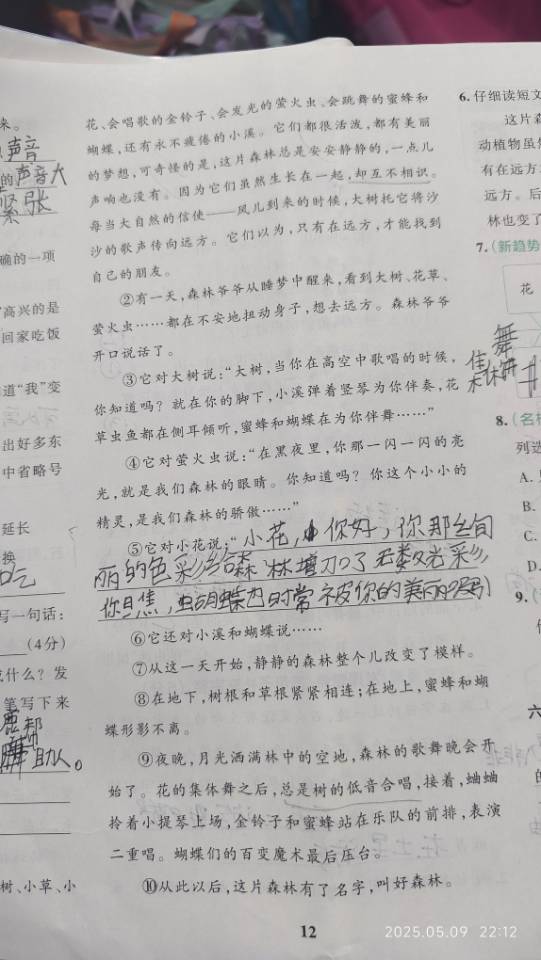 来。
声音
的声音大
紧张
确的一项
高兴的是
回家吃饭
道“我”变
出好多东
中省略号
延长
换
吃
写一句话：
(4分)
什么？发
笔写下来
帮
助人。
树、小草、小
花、会唱歌的金铃子、会发光的萤火虫、会跳舞的蜜蜂和
蝴蝶，还有永不疲倦的小溪。它们都很活泼，都有美丽
的梦想，可奇怪的是，这片森林总是安安静静的，一点儿
声响也没有。因为它们虽然生长在一起，却互不相识。
每当大自然的信使——风儿到来的时候，大树托它将沙
沙的歌声传向远方。它们以为，只有在远方，才能找到
自己的朋友。
②有一天，森林爷爷从睡梦中醒来，看到大树、花草、
萤火虫……都在不安地扭动身子，想去远方。森林爷爷
开口说话了。
③它对大树说：“大树，当你在高空中歌唱的时候，
你知道吗？就在你的脚下，小溪弹着竖琴为你伴奏，花
草虫鱼都在侧耳倾听，蜜蜂和蝴蝶在为你伴舞……”
④它对萤火虫说：“在黑夜里，你那一闪一闪的亮
光，就是我们森林的眼睛。你知道吗？你这个小小的
精灵，是我们森林的骄傲……”
⑤它对小花说：“小花，你好，你那
丽的色彩给森林增加了无数光彩，
你且焦，蝴蝶时常被你的美丽吸引
⑥它还对小溪和蝴蝶说……
⑦从这一天开始，静静的森林整个儿改变了模样。
⑧在地下，树根和草根紧紧相连；在地上，蜜蜂和蝴
蝶形影不离。
⑨夜晚，月光洒满林中的空地，森林的歌舞晚会开
始了。花的集体舞之后，总是树的低音合唱，接着，蛐蛐
拎着小提琴上场，金铃子和蜜蜂站在乐队的前排，表演
二重唱。蝴蝶们的百变魔术最后压台。
⑩从此以后，这片森林有了名字，叫好森林。
12
6.仔细读短文
这片森
动植物虽然
有在远方
远方。后
林也变了
7.(新趋势
花
舞
集
体
8.(名校
列选
A.
B.
C.
D.
9.(
六
2025.05.09 22:12